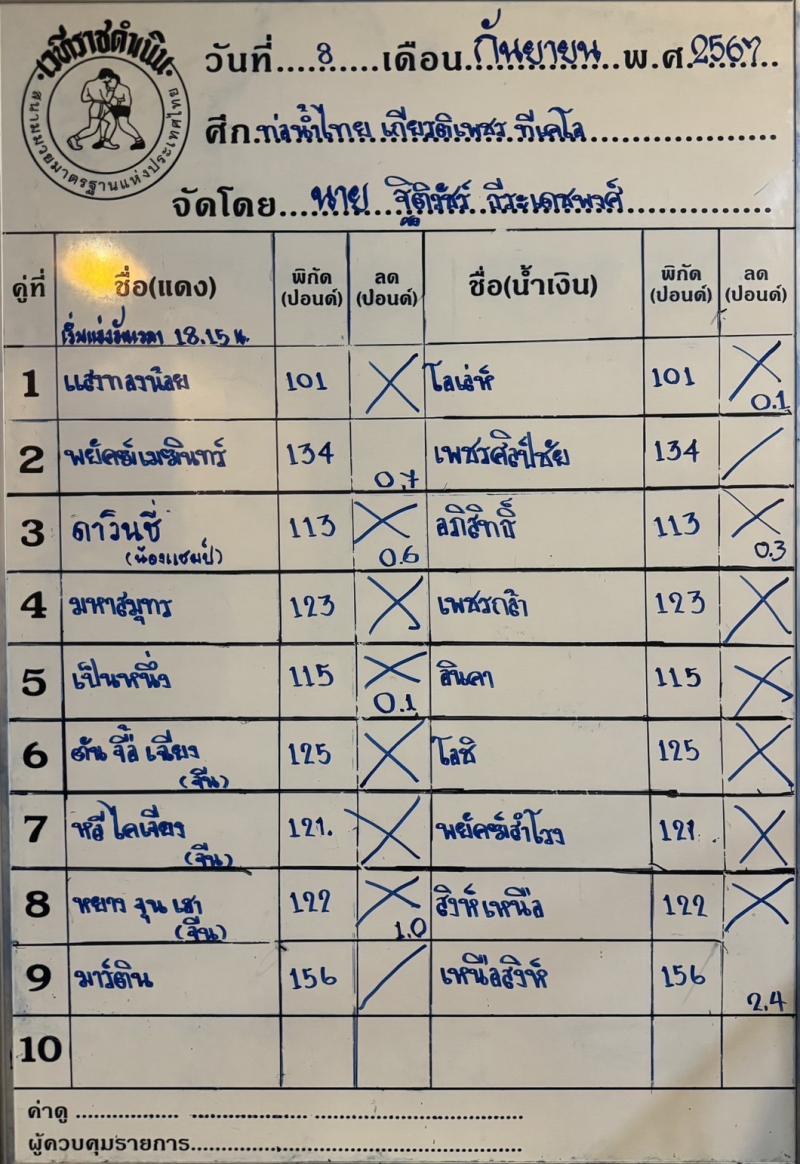 เวทีราชดำเนิน
สนามมวยมาตรฐานแห่งประเทศไทย
วันที่....8.....เดือน.กันยายน..พ.ศ.2567..
ศึก.ท่อน้ำไทย เกียรติเพชร ทีเคโอ
จัดโดย....นาย ฐิติรัชร์ ธีระเดชพงศ์
คู่ที่ ชื่อ(แดง) พิกัด (ปอนด์) ลด (ปอนด์) ชื่อ(น้ำเงิน) พิกัด (ปอนด์) ลด (ปอนด์)
เริ่มแข่งขันเวลา 18.15 น.
1 แสงทองน้อย 101 โลเล่ห์ 101 0.1
2 พยัคฆ์เมฆินทร์ 134 0.7 เพชรศิลป์ชัย 134
3 ดาวินชี่ 113 0.6 อภิสิทธิ์ 113 0.3
(น้องแชมป์)
4 มหาสมุทร 123 เพชรกล้า 123
5 เป็นหนึ่ง 115 0.1 อินคา 115
6 ตัน จื้อ เฉียง 125 โลชิ 125
(จีน)
7 หลี ไคเจียง 121. พยัคฆ์สำโรง 121
(จีน)
8 หยาง จุน เฮา 122 1.0 สิงห์เหนือ 122
(จีน)
9 มาร์ติน 156 เหนือสิงห์ 156 2.4
10
ค่าดู
ผู้ควบคุมรายการ